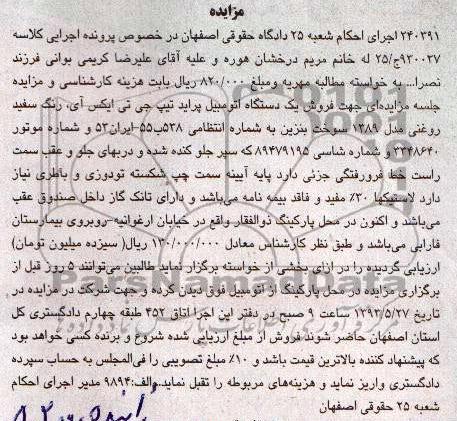 مزایده
۲۴۰۳۹۱ اجرای احکام شعبه ۲۵ دادگاه حقوقی اصفهان در خصوص پرونده اجرایی کلاسه
۹۲۰۰۲۷ج/۲۵ له خانم مریم درخشان هوره و علیه آقای علیرضا کریمی بوانی فرزند
نصرا... به خواسته مطالبه مهریه و مبلغ ۸۲۰/۰۰۰ ریال بابت هزینه کارشناسی و مزارده
جلسه مزایده‌ای جهت فروش یک دستگاه اتومبیل پراید تیپ جی تی ایکس آی، رنگ سفید
روغنی مدل ۱۳۸۹ سوخت بنزین به شماره انتظامی ۵۳۸ب۵۵-ایران۵۳ و شماره موتور
۳۳۴۸۶۴۰ و شماره شاسی ۸۹۴۷۹۱۹۵ که سپر جلو کنده شده و دربهای جلو و عقب سمت
راست خط فرورفتگی جزئی دارد پایه آیینه سمت چپ شکسته تودوزی و باطری نیاز
دارد لاستیکها ۳۰٪ مفید و فاقد بیمه نامه می‌باشد و دارای تانک گاز داخل صندوق عقب
می‌باشد و اکنون در محل پارکینگ ذوالفقار واقع در خیابان ارغوانیه-روبروی بیمارستان
فارابی می‌باشد و طبق نظر کارشناس معادل ۱۳۰/۰۰۰/۰۰۰ ریال( سیزده میلیون تومان)
ارزیابی گردیده را در ازای بخشی از خواسته برگزار نماید طالبین می‌توانند ۵ روز قبل از
برگزاری مزایده در محل پارکینگ از اتومبیل فوق دیدن کرده و جهت شرکت در مزایده در
تاریخ ۱۳۹۳/۵/۲۷ ساعت ۹ صبح در دفتر این اجرا اتاق ۴۵۲ طبقه چهارم دادگستری کل
استان اصفهان حاضر شوند فروش از مبلغ ارزیابی شده شروع و برنده کسی خواهد بود
که پیشنهاد کننده بالاترین قیمت باشد و ۱۰٪ مبلغ تصویبی را فی‌المجلس به حساب سپرده
دادگستری واریز نماید و هزینه‌های مربوطه را تقبل نماید.م/الف:۹۸۹۴ مدیر اجرای احکام
شعبه ۲۵ حقوقی اصفهان